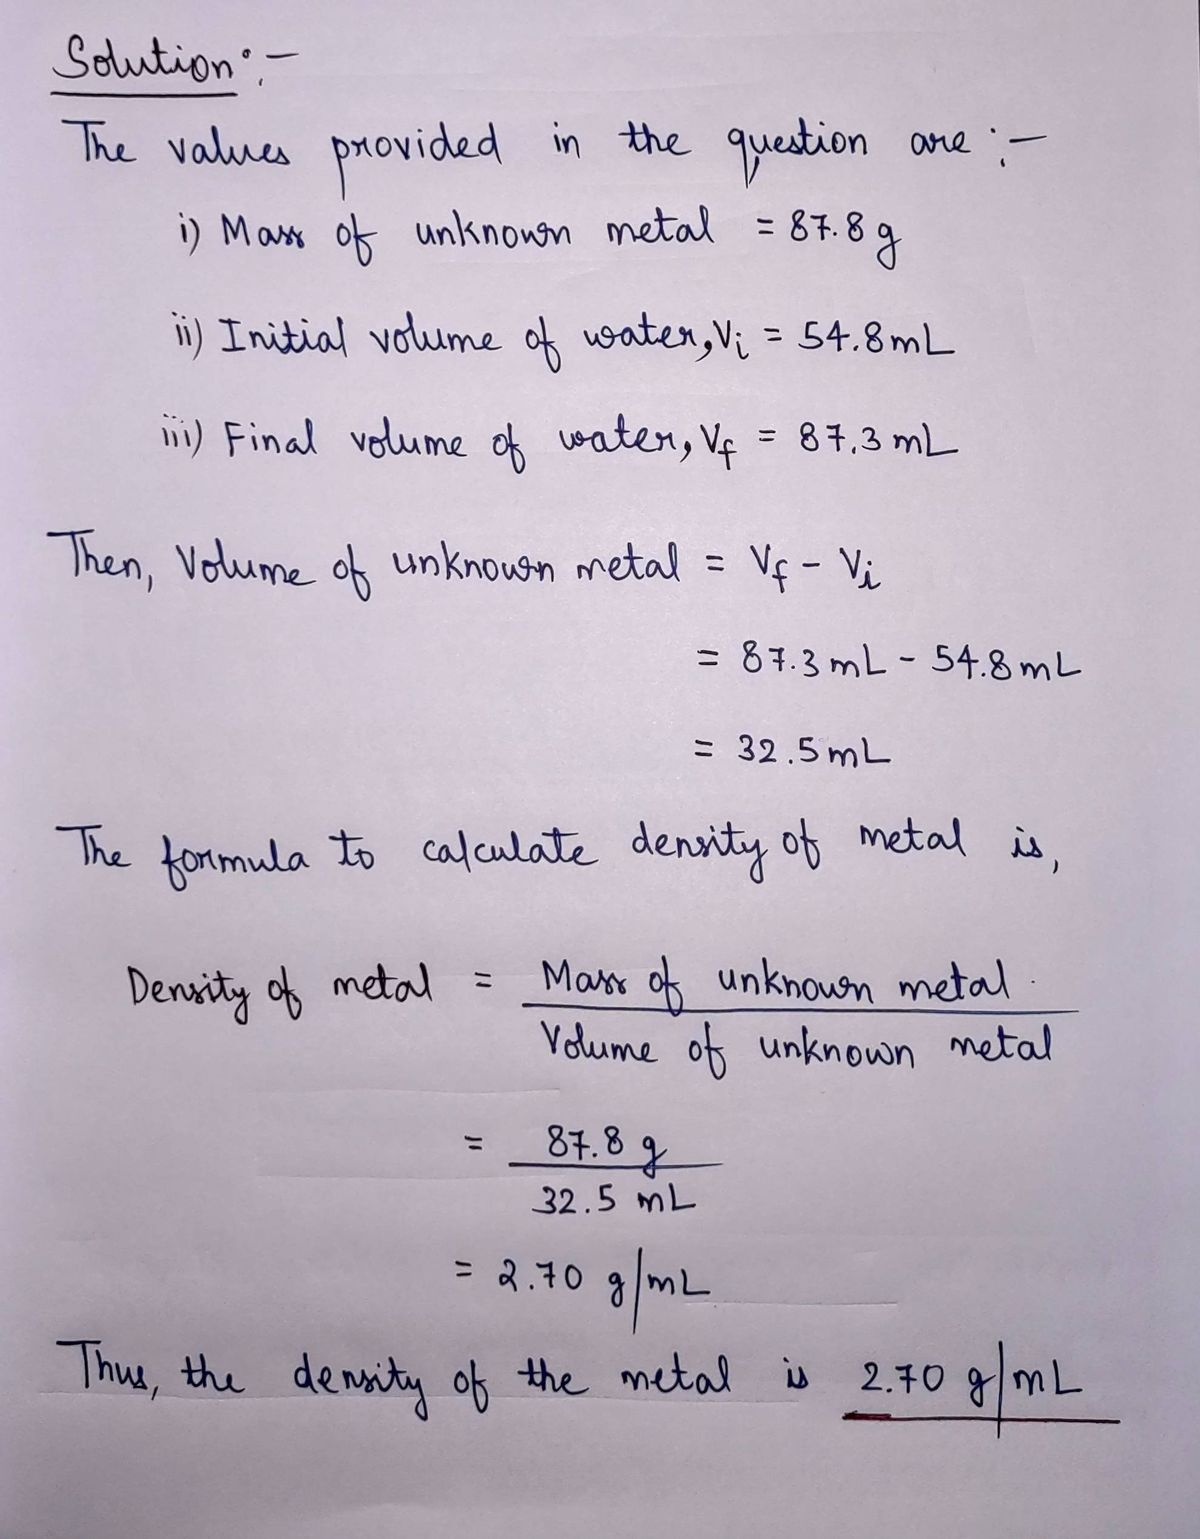 Solution :-
The values provided in the question are :-
i) Mass of unknown metal = 87.8 g
ii) Initial volume of water, Vi = 54.8 mL
iii) Final volume of water, Vf = 87.3 mL
Then, Volume of unknown metal = Vf - Vi
= 87.3 mL - 54.8 mL
= 32.5 mL
The formula to calculate density of metal is,
Density of metal = Mass of unknown metal
Volume of unknown metal
= 87.8 g
32.5 mL
= 2.70 g/mL
Thus, the density of the metal is 2.70 g/mL